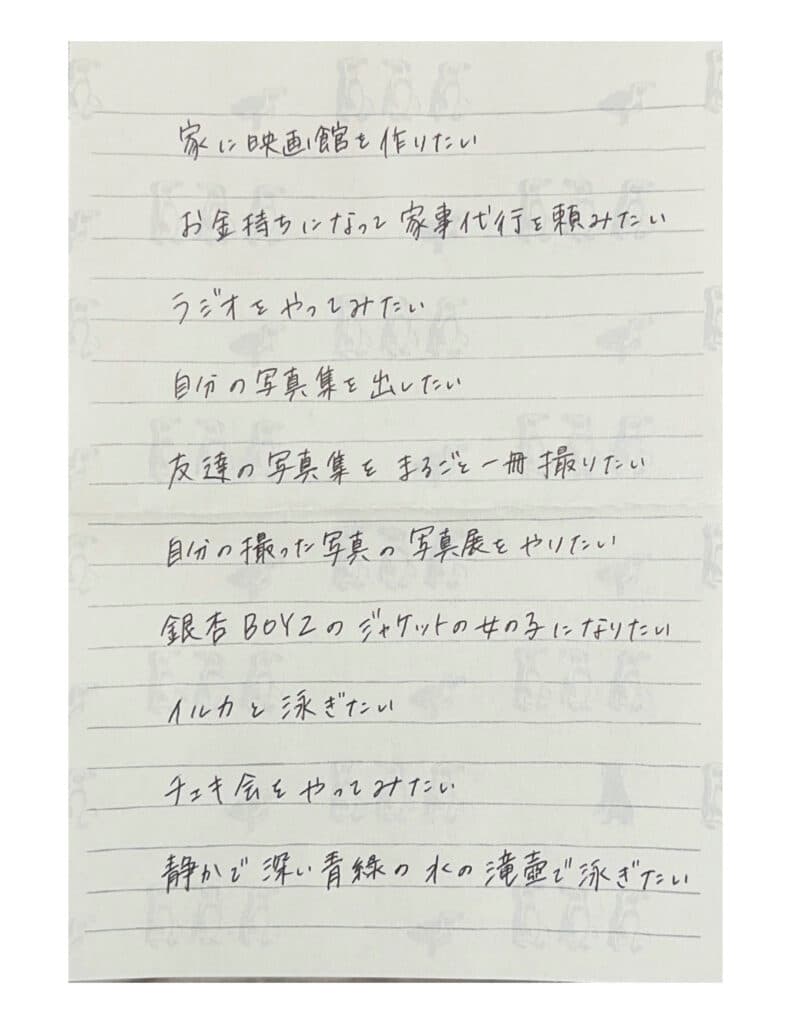 家に映画館を作りたい
お金持ちになって家事代行を頼みたい
ラジオをやってみたい
自分の写真集を出したい
友達の写真集をまるごと一冊撮りたい
自分の撮った写真の写真展をやりたい
銀杏BOYZのジャケットの女の子になりたい
イルカと泳ぎたい
チェキ会をやってみたい
静かで深い青緑の水の滝壺で泳ぎたい